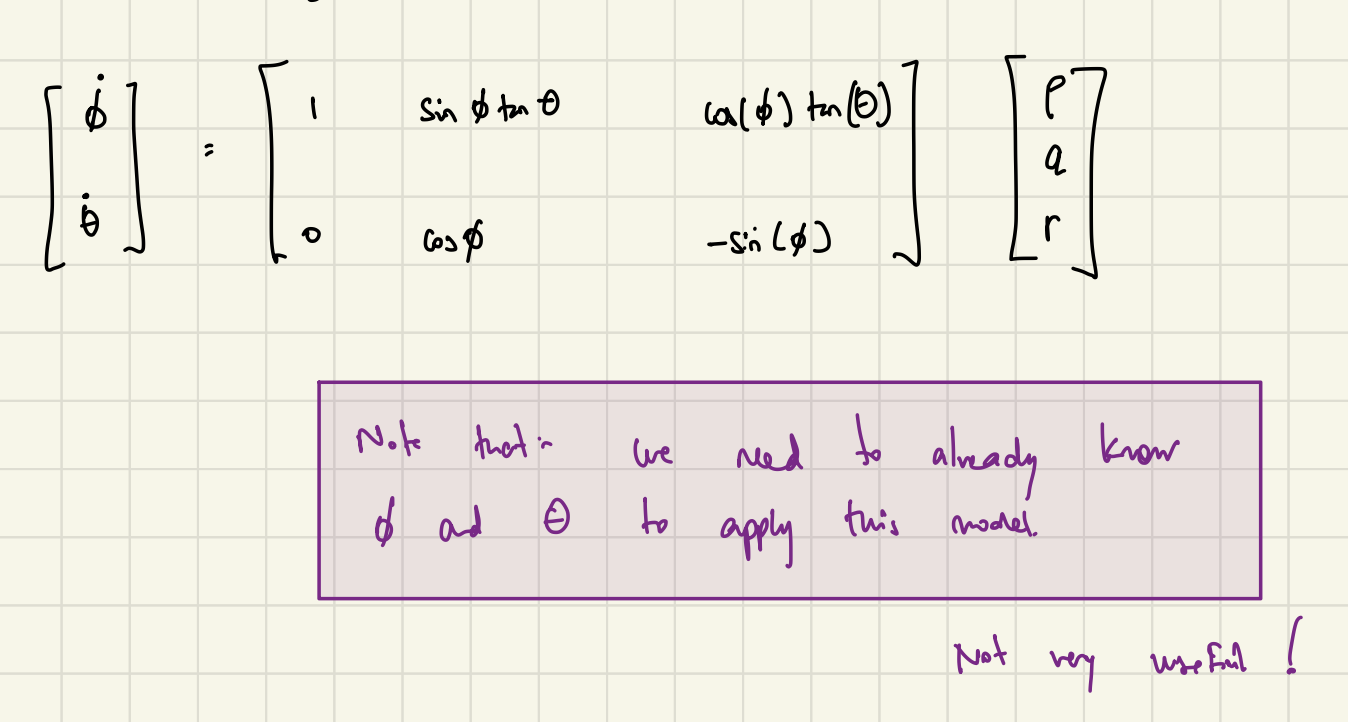 [ϕ̇ θ̇] = [1 sin ϕ tan θ cos(ϕ) tan(θ) 0 cos ϕ -sin(ϕ)] [p q r]
Note that:- we need to already know
ϕ and θ to apply this model.
Not very useful!